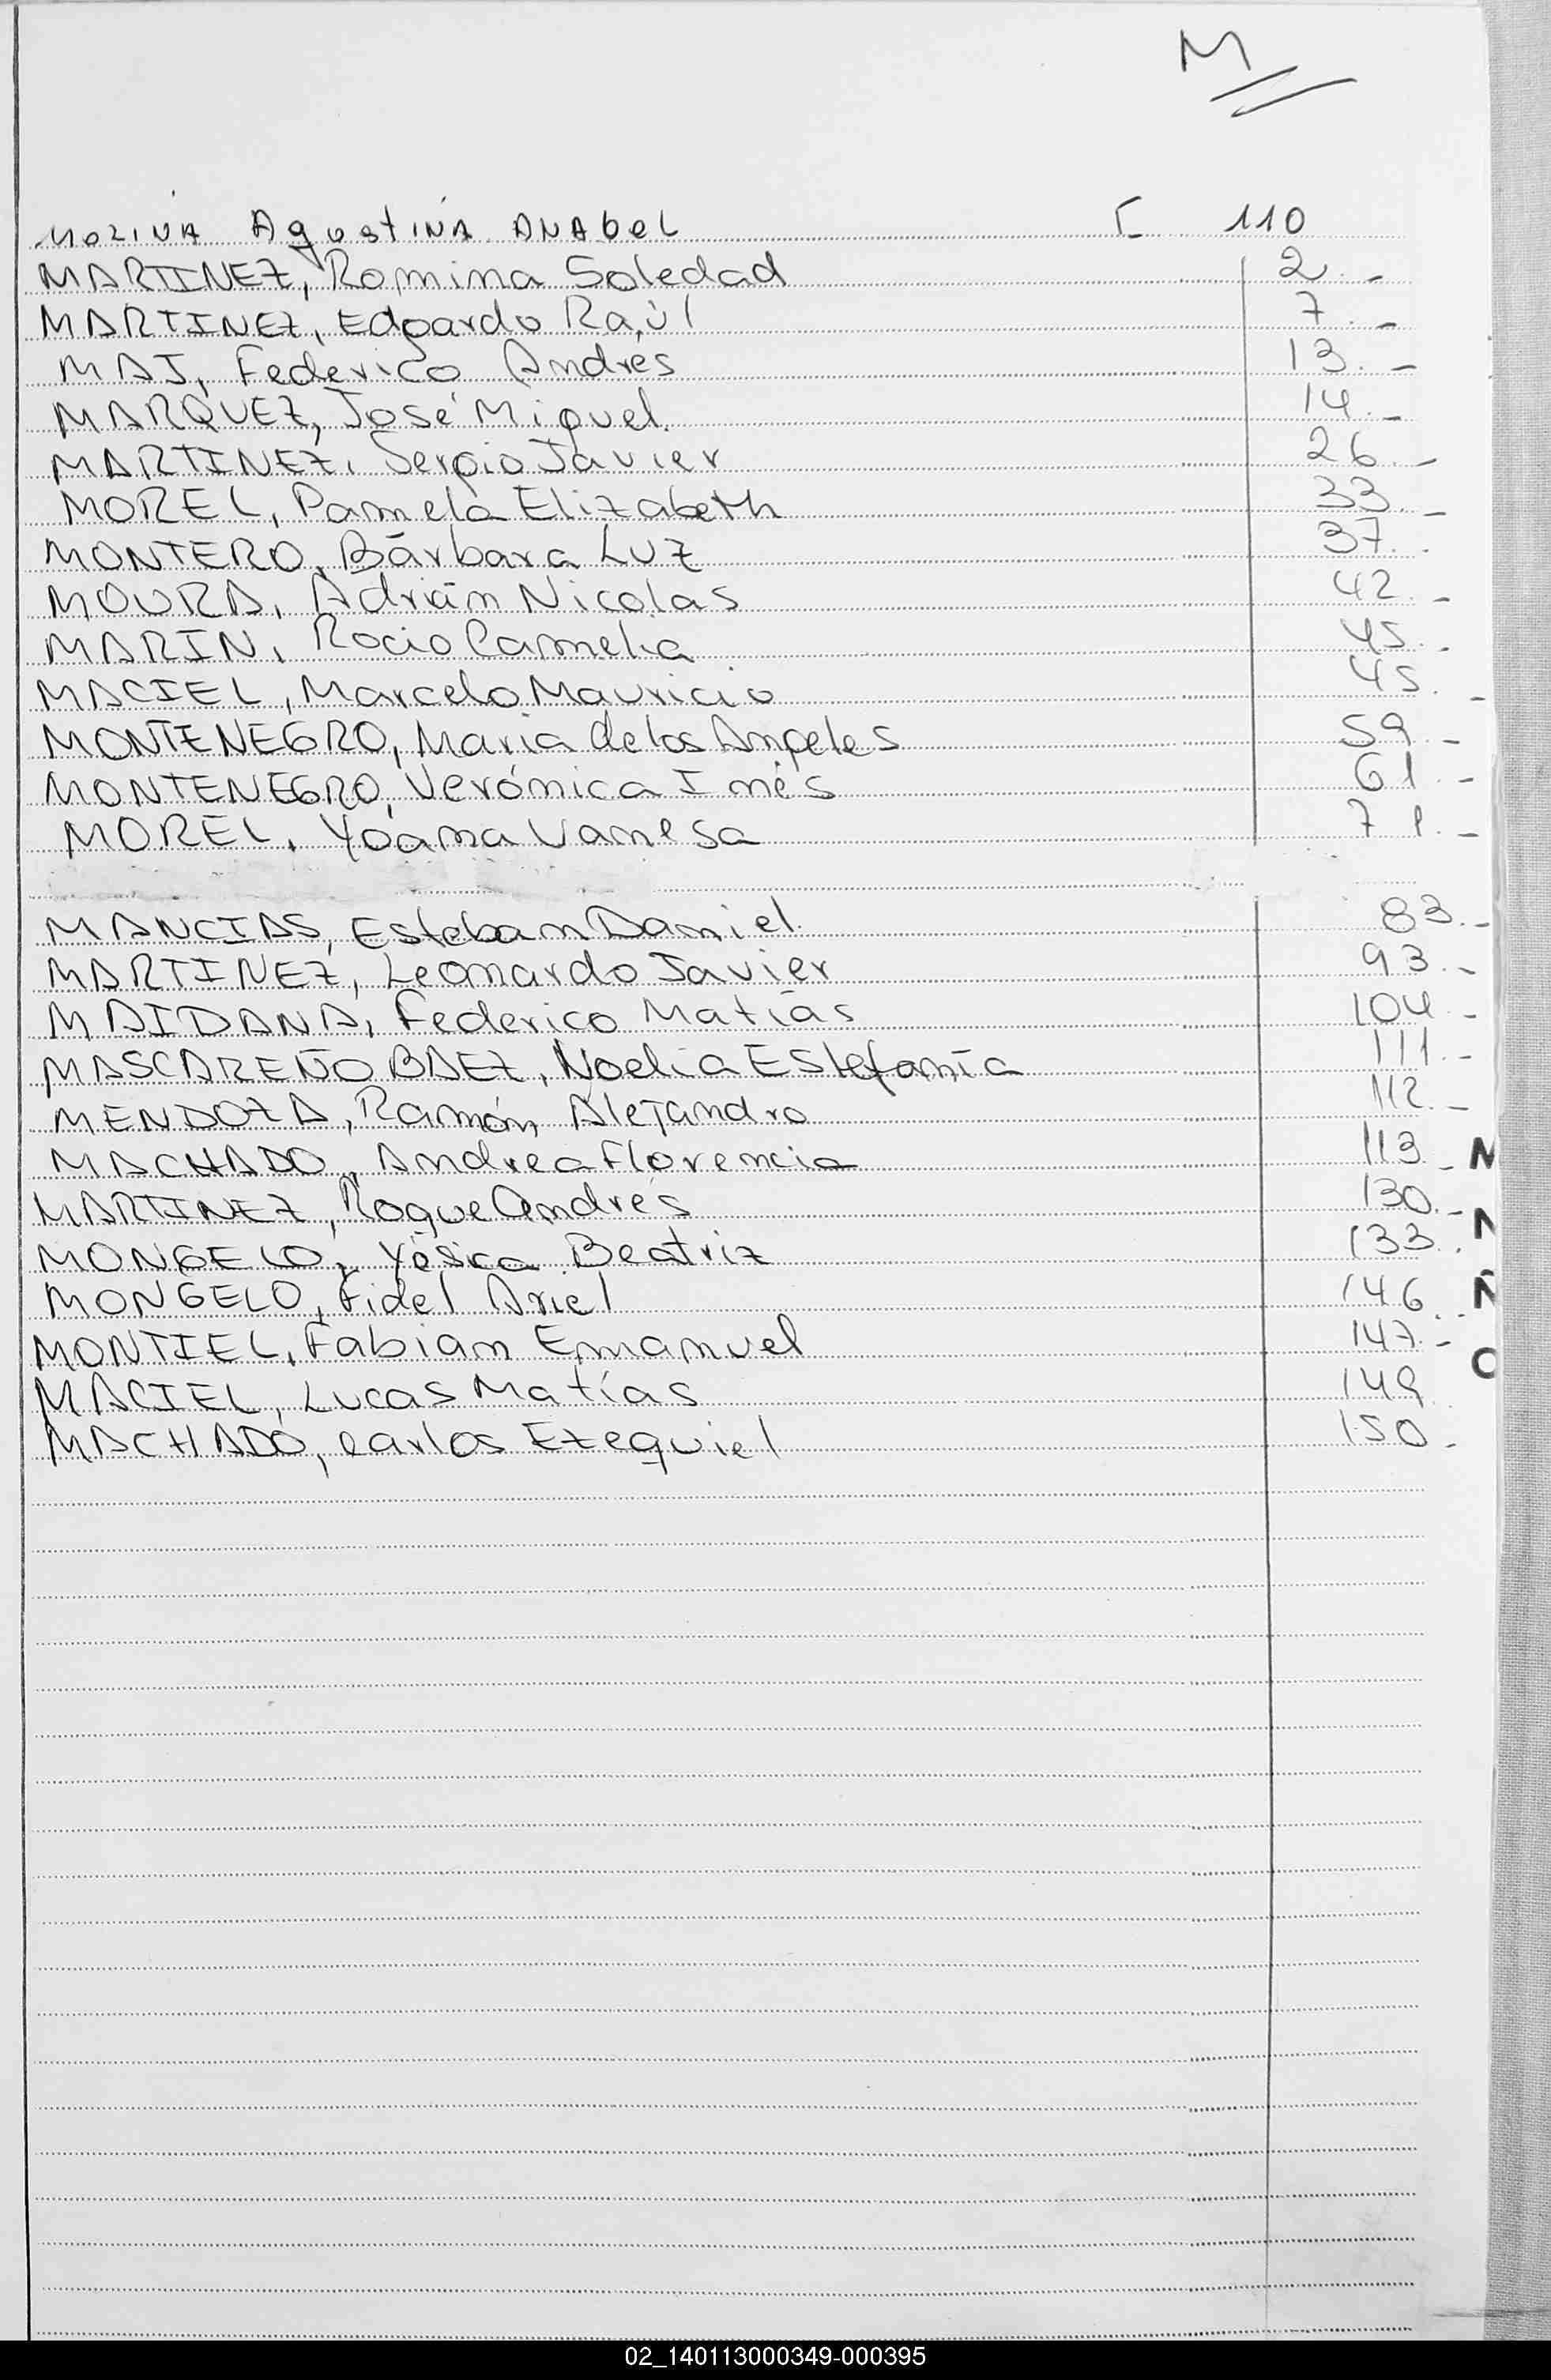 M
Molina Agustina Anabel F 110
MARTINEZ, Romina Soledad 2.-
MARTINEZ, Edgardo Raúl 7.-
MAJ, Federico Andrés 13.-
MARQUEZ, José Miguel. 14.-
MARTINEZ, Sergio Javier 26.-
MOREL, Pamela Elizabeth 33.-
MONTERO, Bárbara Luz 37.-
MOURA, Adrián Nicolas 42.-
MARIN, Rocio Carmelia 45.-
MACIEL, Marcelo Mauricio 45.-
MONTENEGRO, Maria de los Angeles 59.-
MONTENEGRO, Verónica Inés 61.-
MOREL, Yoana Vanesa 71.-
MANCIAS, Esteban Daniel. 83.-
MARTINEZ, Leonardo Javier 93.-
MAIDANA, Federico Matías 104.-
MASCAREÑO BAEZ, Noelia Estefanía 111.-
MENDOZA, Ramón Alejandro 112.-
MACHADO, Andrea Florencia 113.- M
MARTINEZ, Roque Andrés 130.-
N
MONGELO, Yésica Beatriz 133.-
MONGELO, Fidel Ariel 146.- Ñ
MONTIEL, Fabian Emmanuel 147.-
O
MACIEL, Lucas Matías 149
MACHADO, Carlos Ezequiel 150.-
02_140113000349-000395